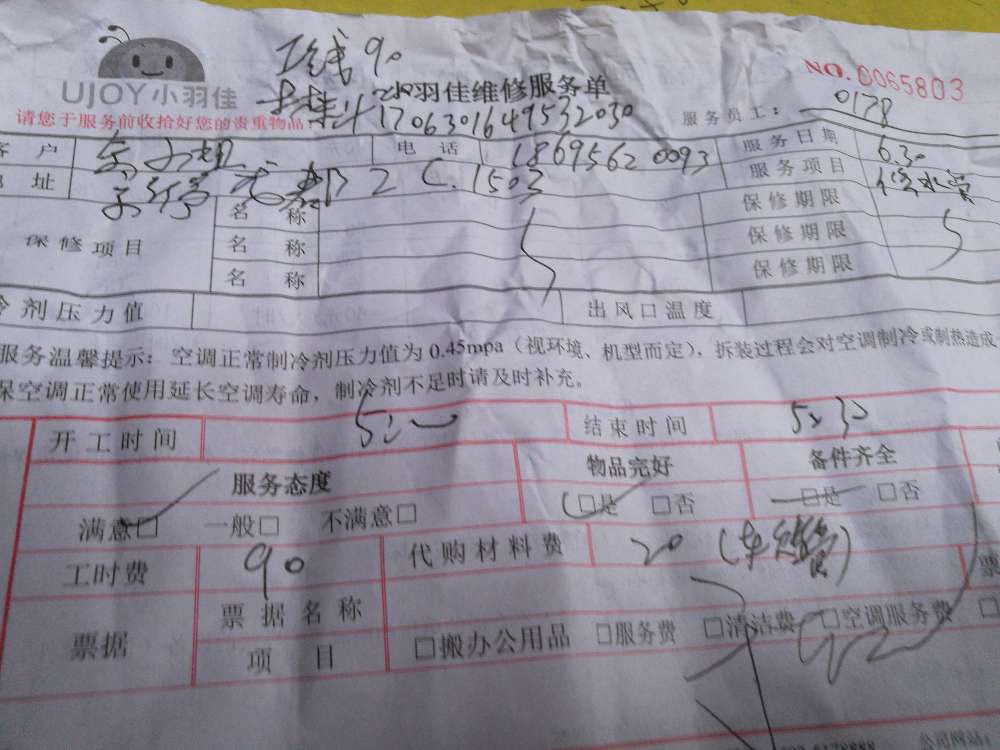 UJOY小羽佳
90
小羽佳维修服务单
NO.0065803
请您于服务前收拾好您的贵重物品!
1706301649532030
服务员工: 0178
客户
电话 18695620093 服务日期 6.30
地址 2 C.1503 服务项目 修水管
保修项目 名称 保修期限
名称 保修期限
名称 保修期限
冷剂压力值 出风口温度
服务温馨提示: 空调正常制冷剂压力值为 0.45mpa (视环境、机型而定), 拆装过程会对空调制冷或制热造成
保空调正常使用延长空调寿命, 制冷剂不足时请及时补充。
开工时间 结束时间
服务态度 物品完好 备件齐全
满意□ 一般□ 不满意□ □是 □否 □是 □否
工时费 90 代购材料费 20
票据 票据名称
项目 □搬办公用品 □服务费 □清洁费 □空调服务费
公司网站: